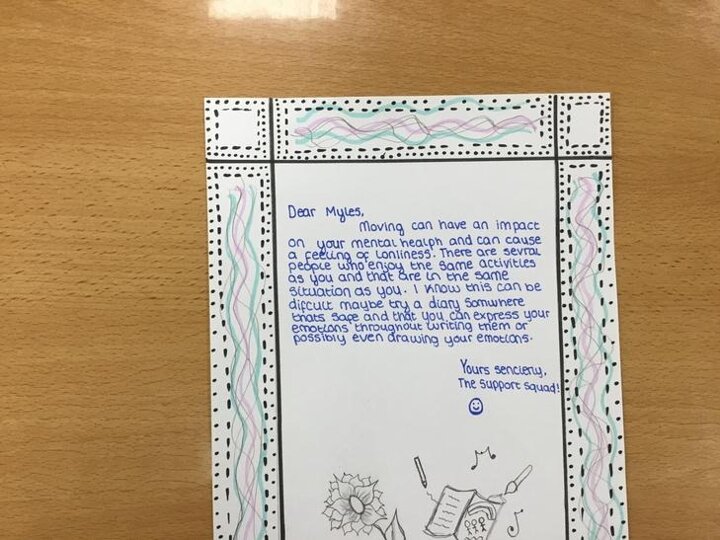 Dear Myles,
Moving can have an impact
on your mental healph and can cause
a feeling of lonliness. There are sevral
people who enjoy the same activities
as you and that are in the same
situation as you. I know this can be
difcult maybe try a diary somwhere
thats safe and that you can express your
emotions throughout writing them or
possibly even drawing your emotions.
Yours senciery,
The Support Squad!